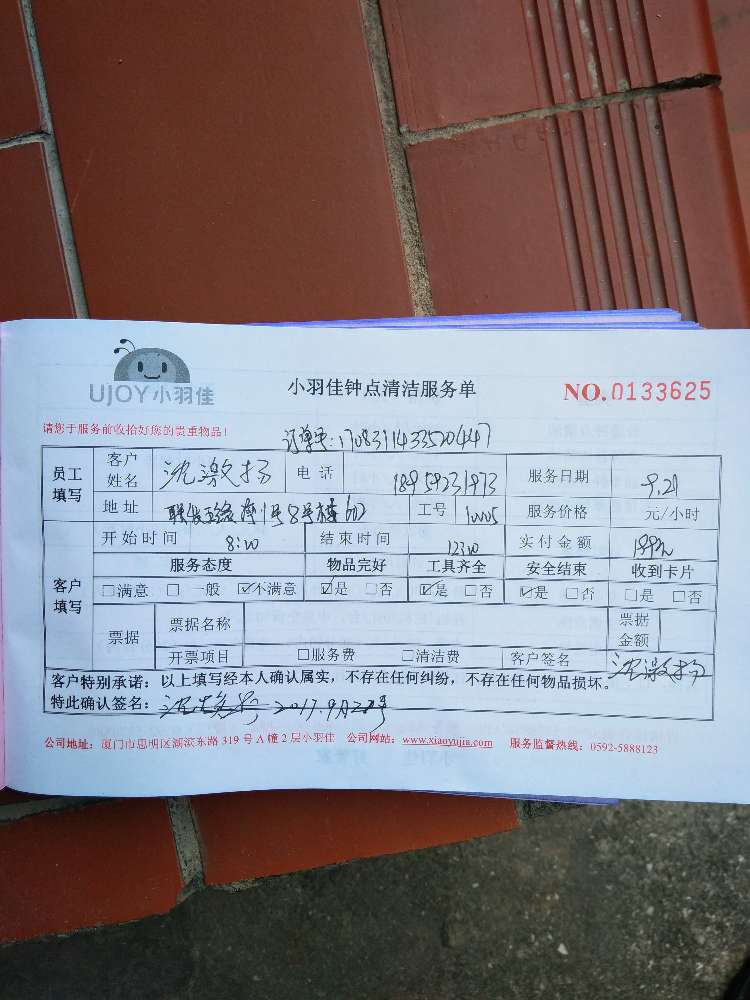 UJOY小羽佳
小羽佳钟点清洁服务单
NO.0133625
请您于服务前收拾好您的贵重物品!
订单号:1708311433520447
员工填写 客户姓名 沈激扬 电话 18959231973 服务日期 9.21
地址 1号8号楼602 工号 10005 服务价格 元/小时
开始时间 8:00 结束时间 12:00 实付金额
客户填写 服务态度 物品完好 工具齐全 安全结束 收到卡片
□满意 □一般 ☑不满意 ☑是 □否 ☑是 □否 ☑是 □否 □是 □否
票据 票据名称 票据金额
开票项目 □服务费 □清洁费 客户签名 沈激扬
客户特别承诺:以上填写经本人确认属实,不存在任何纠纷,不存在任何物品损坏。
特此确认签名: 2017.9月21号
公司地址:厦门市思明区湖滨东路319号A幢2层小羽佳 公司网站:www.xiaoyujia.com 服务监督热线:0592-5888123